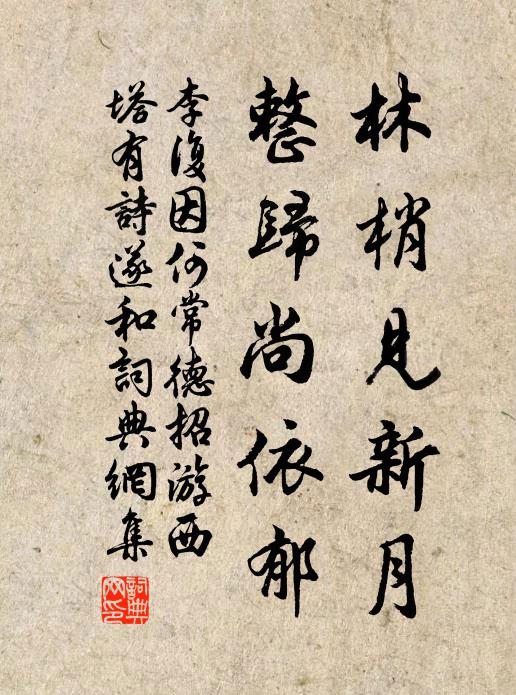 林梢見新月
整歸尚依郁
李復因何常德招游西
塔有詩遂和詞典網集
詞典